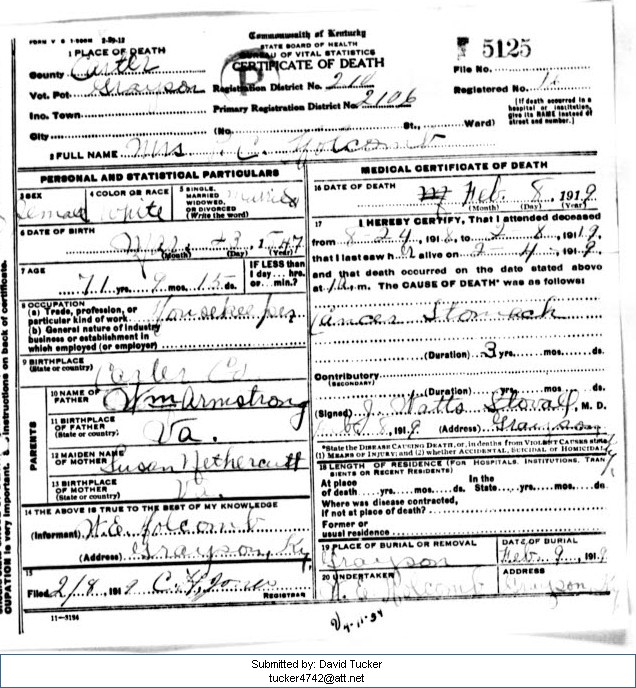 FORM V S 1-500M 2-29-12
Commonwealth of Kentucky
STATE BOARD OF HEALTH
BUREAU OF VITAL STATISTICS
CERTIFICATE OF DEATH
5125
1 PLACE OF DEATH
County Carter
Vot. Pct Grayson
Inc. Town
City (No. St., Ward)
Registration District No. 210
Primary Registration District No. 2106
File No.
Registered No.
[If death occurred in a hospital or institution, give its NAME instead of street and number.]
2 FULL NAME Mrs Holcomb
PERSONAL AND STATISTICAL PARTICULARS
3 SEX Female
4 COLOR OR RACE White
5 SINGLE, MARRIED WIDOWED, OR DIVORCED (Write the word) Married
6 DATE OF BIRTH
(Month) (Day) (Year)
7 AGE 71 yrs. 9 mos. 15 ds.
IF LESS than 1 day... hrs. or... min.?
8 OCCUPATION
(a) Trade, profession, or particular kind of work Housekeeper
(b) General nature of industry business or establishment in which employed (or employer)
9 BIRTHPLACE
(State or country) Carter Co
PARENTS
10 NAME OF FATHER Wm Armstrong
11 BIRTHPLACE OF FATHER (State or country) Va.
12 MAIDEN NAME OF MOTHER Susen Nethercutt
13 BIRTHPLACE OF MOTHER (State or country) Va
14 THE ABOVE IS TRUE TO THE BEST OF MY KNOWLEDGE
(Informant) W.E. Holcomb
(Address) Grayson, Ky
15
Filed 2/8, 1919 REGISTRAR
11-3194
MEDICAL CERTIFICATE OF DEATH
16 DATE OF DEATH Feb. 8, 1919
(Month) (Day) (Year)
17 I HEREBY CERTIFY, That I attended deceased
from 8 24, 1918, to 2-8, 1919,
that I last saw h alive on 2 4-, 1919,
and that death occurred on the date stated above
at m. The CAUSE OF DEATH* was as follows:
Cancer Stomach
(Duration) 3 yrs. mos. ds.
Contributory
(SECONDARY)
(Duration) yrs. mos. ds.
(Signed) J. Watts Stovall, M. D.
8, 1919 (Address) Grayson
*State the DISEASE CAUSING DEATH, or, in deaths from VIOLENT CAUSES state (1) MEANS OF INJURY; and (2) whether ACCIDENTAL, SUICIDAL or HOMICIDAL
18 LENGTH OF RESIDENCE (FOR HOSPITALS, INSTITUTIONS, TRANSIENTS OR RECENT RESIDENTS)
At place of death yrs. mos. ds. In the State yrs. mos. ds.
Where was disease contracted, if not at place of death?
Former or usual residence
19 PLACE OF BURIAL OR REMOVAL Grayson
DATE OF BURIAL Feb 9, 1919
20 UNDERTAKER W. E. Holcomb
ADDRESS Grayson Ky
instructions on back of certificate.
CUPATION is very important.
Submitted by: David Tucker
tucker4742@att.net